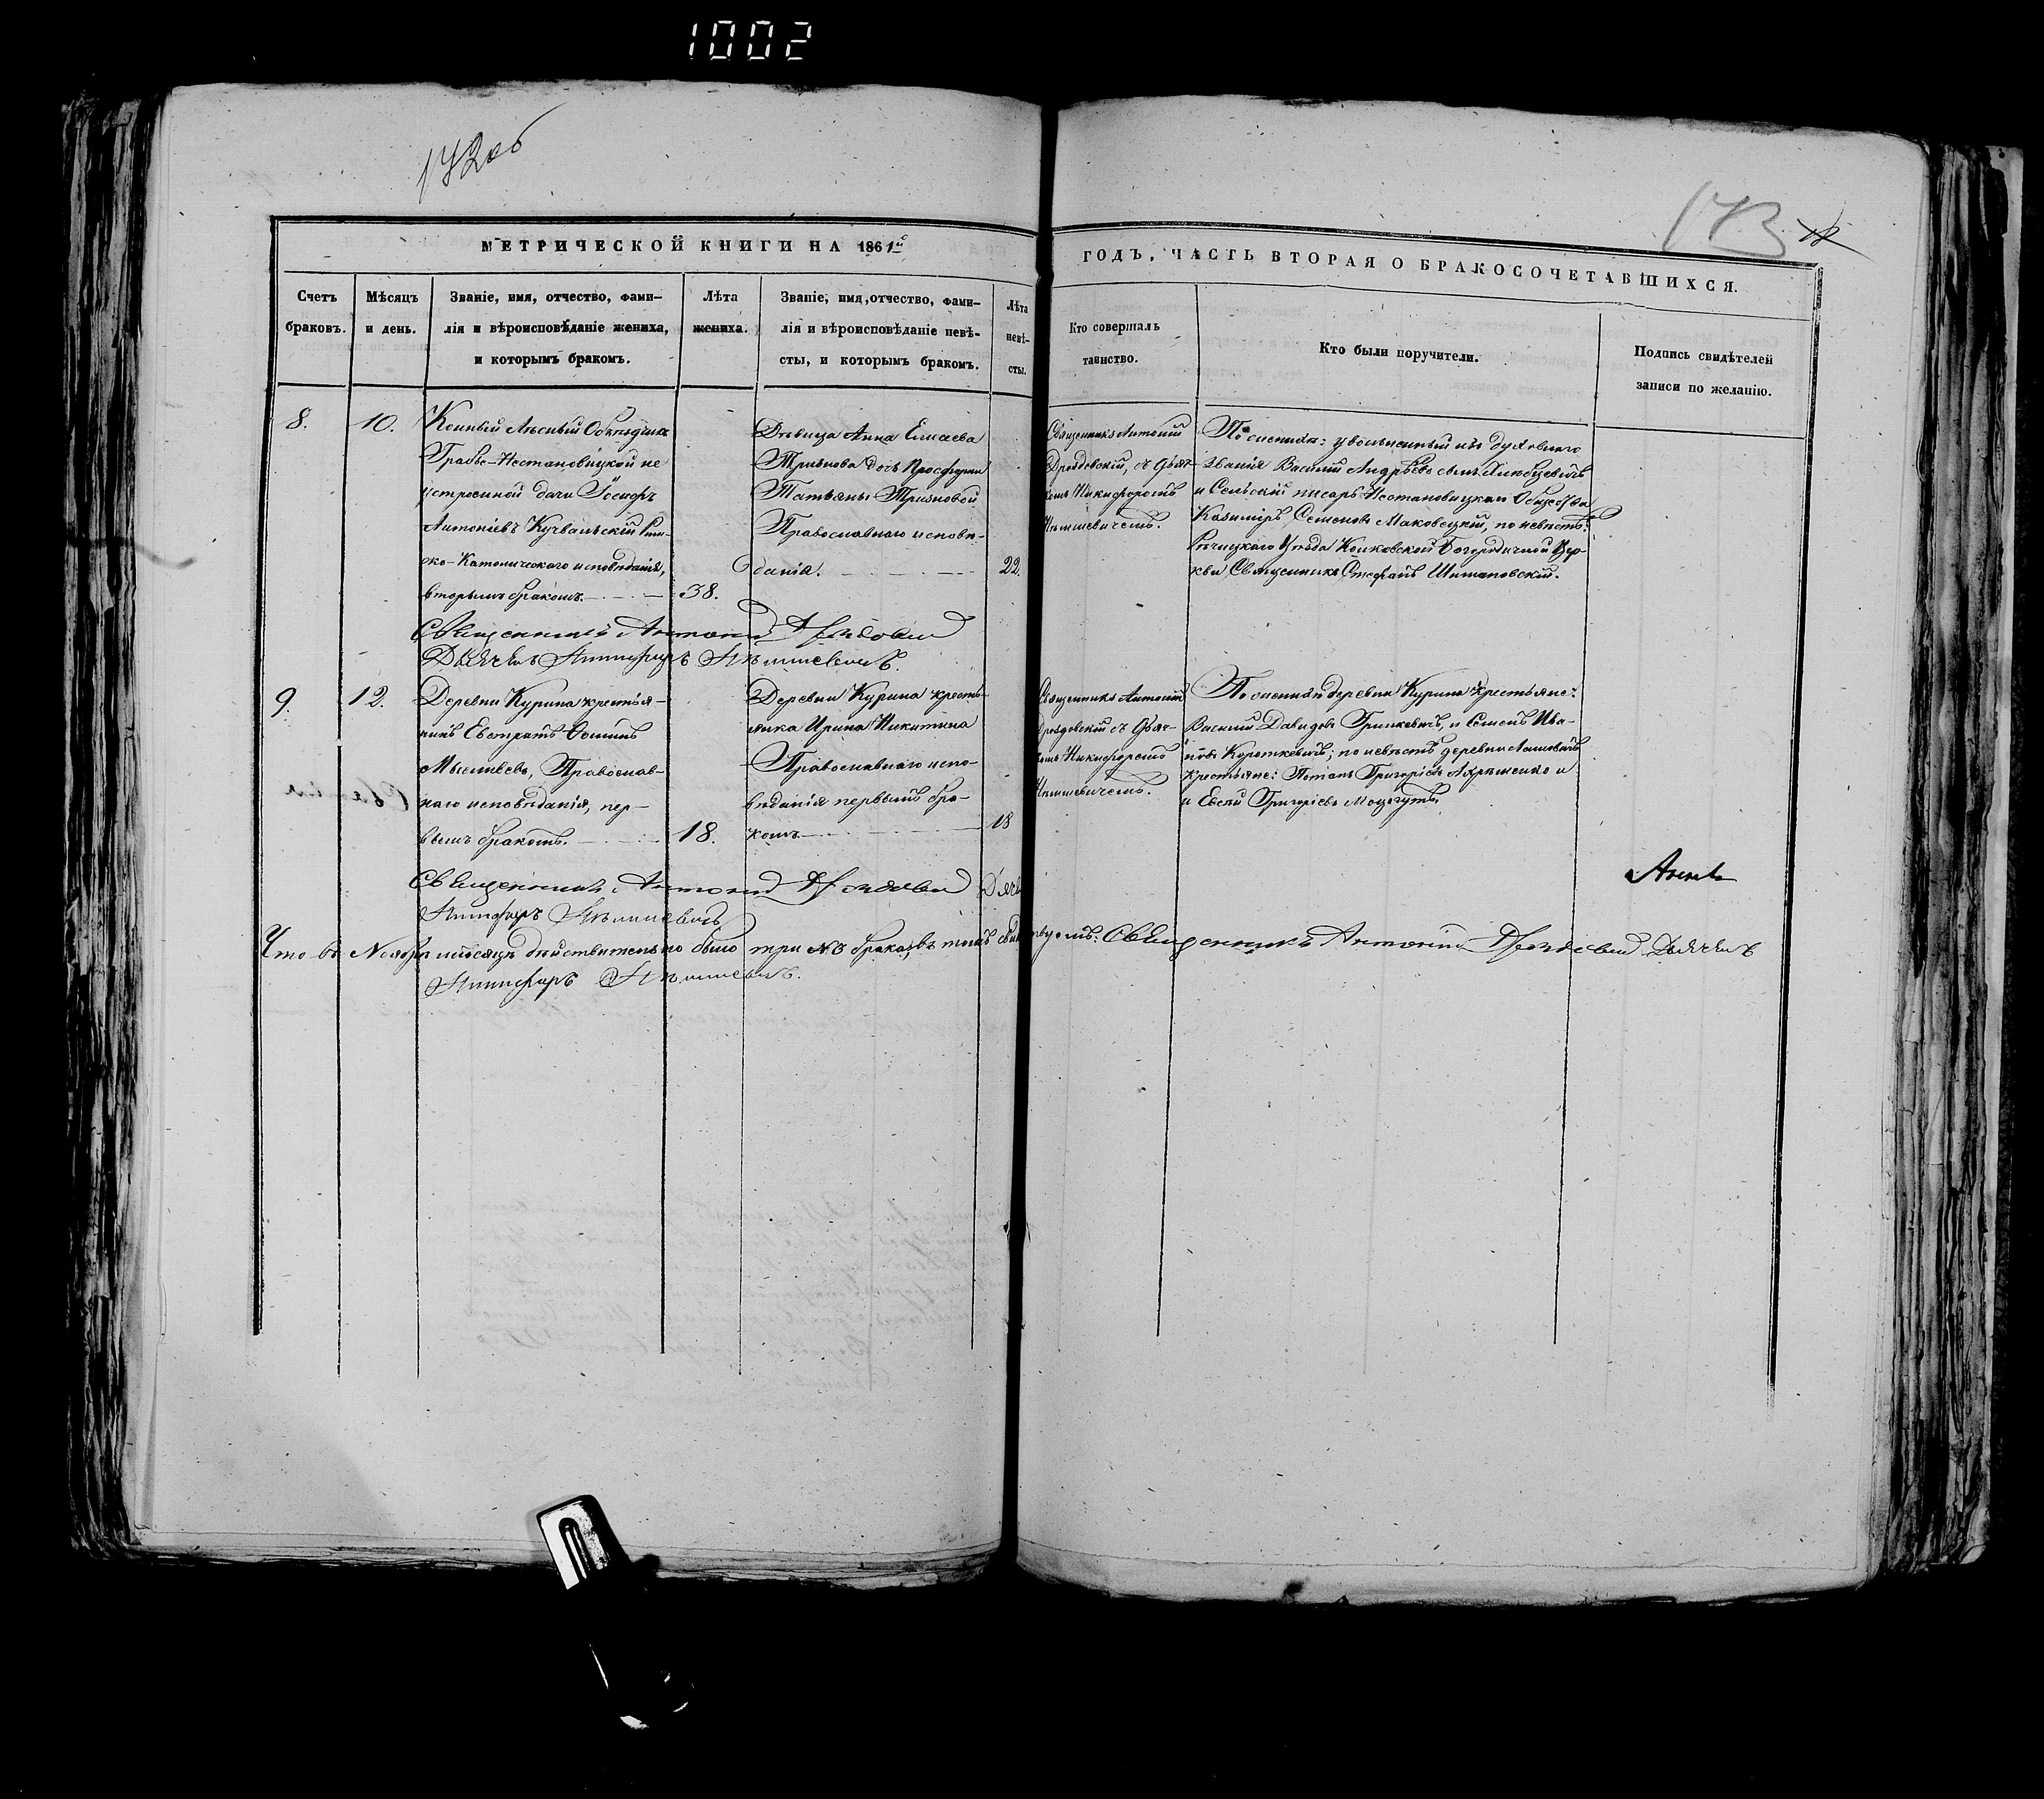 1002
172 об
173
МЕТРИЧЕСКОЙ КНИГИ НА 1861й
ГОДЪ, ЧАСТЬ ВТОРАЯ О БРАКОСОЧЕТАВШИХСЯ.
Счетъ
браковъ.
Мѣсяцъ
и день.
Званіе, имя, отчество, фами-
лія и вѣроисповѣданіе жениха,
и которымъ бракомъ.
Лѣта
жениха.
Званіе, имя, отчество, фами-
лія и вѣроисповѣданіе невѣ-
сты, и которымъ бракомъ.
Лѣта
невѣ-
сты.
Кто совершалъ
таинство.
Кто были поручители.
Подпись свидѣтелей
записи по желанію.
8.
10.
Конный Лѣсный Объѣздчикъ
Грабье-Нестановицкой не
устроенной дачи Іосифъ
Антоніевъ Кучвальскій Рим-
ско-Католическаго исповѣданія,
вторымъ бракомъ.
38.
Дѣвица Анна Елисеева
дочь Просфорни
Татьяны
Православнаго исповѣ-
данія.
22.
Священникъ Антоній
Дроздовскій, съ Дьяч-
комъ Никифоромъ
По женихѣ: уволенный изъ духовнаго
званія Василій Андрѣевъ
и Сельскій писарь Нестановицкаго Общества
Казиміръ Семеновъ Маковецкій, по невѣстѣ:
Рѣчицкаго Уѣзда Богородичной Цер-
кви Священникъ Стефанъ Шимановскій.
Священникъ Антоній Дроздовскій
Дьячекъ Никифоръ
9.
12.
Деревни Курина крестья-
нинъ Евстратъ Ѳоминъ
Православ-
наго исповѣданія, пер-
вымъ бракомъ.
18.
Деревни Курина кресть-
янка Ирина Никитина
Православнаго испо-
вѣданія первымъ бра-
комъ
18
Священникъ Антоній
Дроздовскій съ Дьяч-
комъ Никифоромъ
По женихѣ деревни Курина крестьяне:
Василій Давидовъ Гринкевичъ, и Семенъ Ива-
новъ Короткевичъ; по невѣстѣ деревни
крестьяне: Потапъ Григоріевъ и
и Евсѣй Григоріевъ
Священникъ Антоній Дроздовскій Дьячекъ
Никифоръ
Что въ Ноябрѣ мѣсяцѣ дѣйствительно было три №3 брака, въ томъ свидѣтельствуемъ: Священникъ Антоній Дроздовскій Дьячекъ
Никифоръ